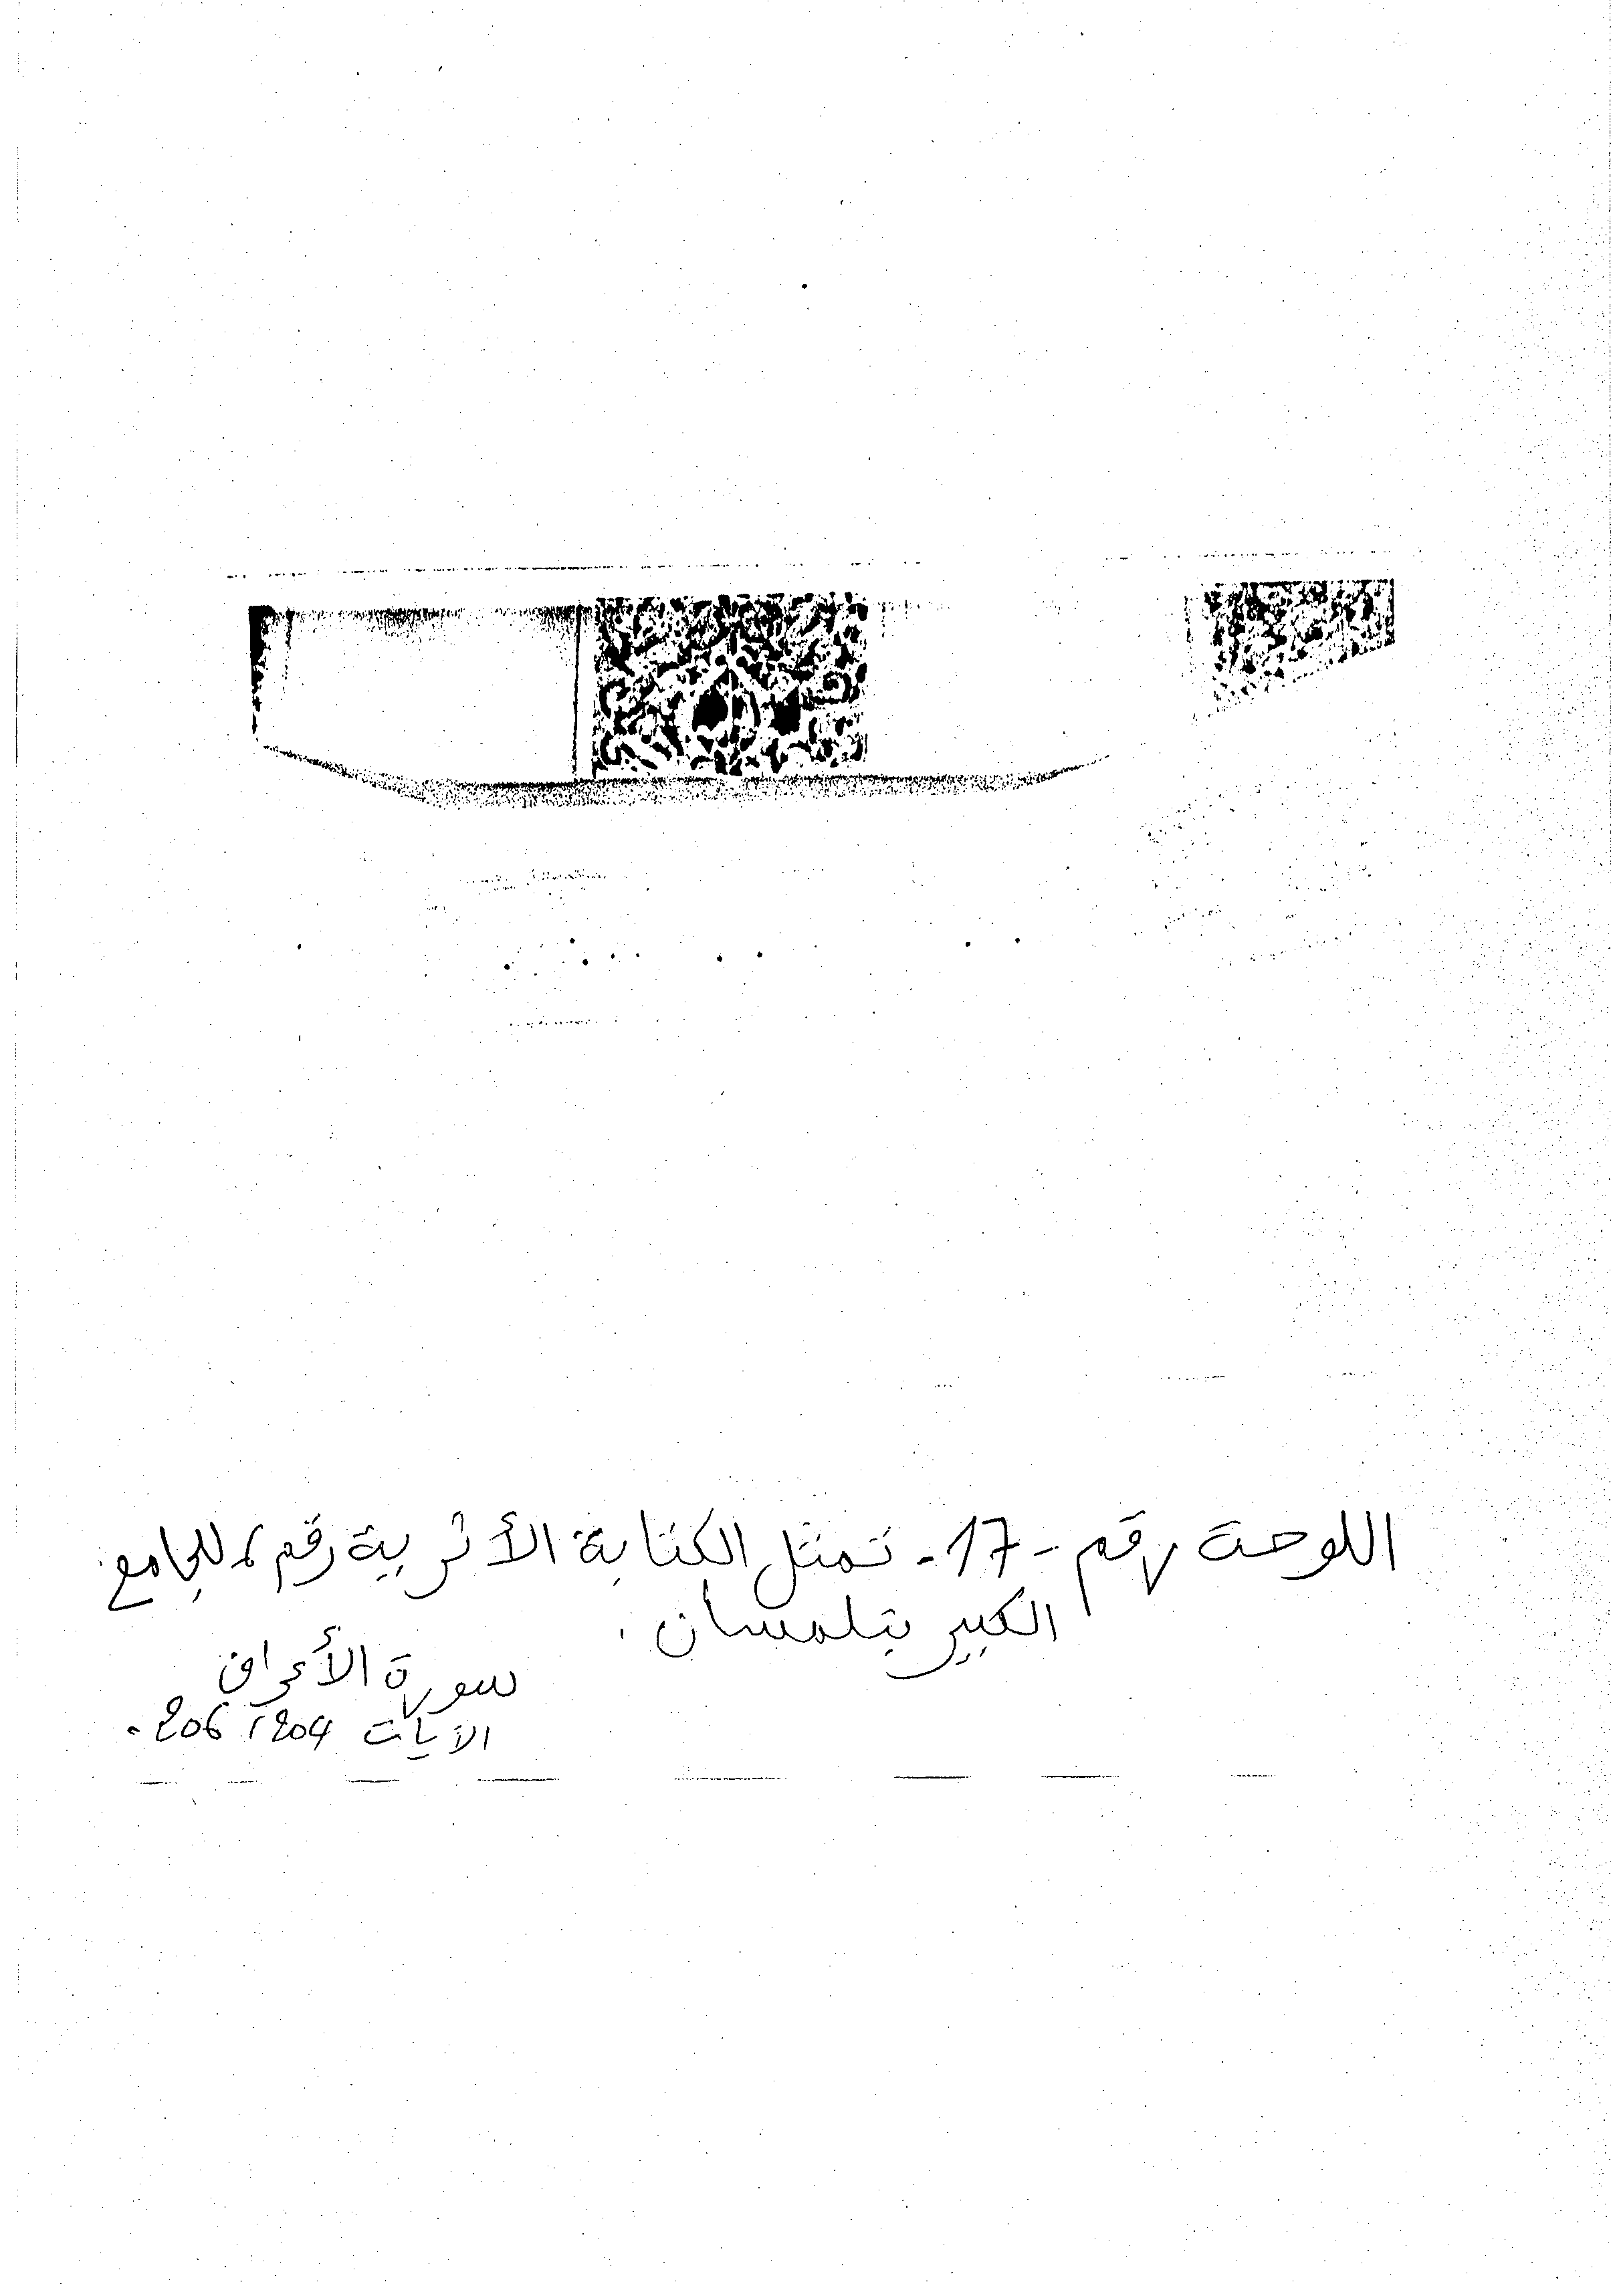 اللوحة رقم -17- تمثل الكتابة الأثرية رقم للجامع
الكبير بتلمسان.
سورة الأعراف
الآيات 204، 206.